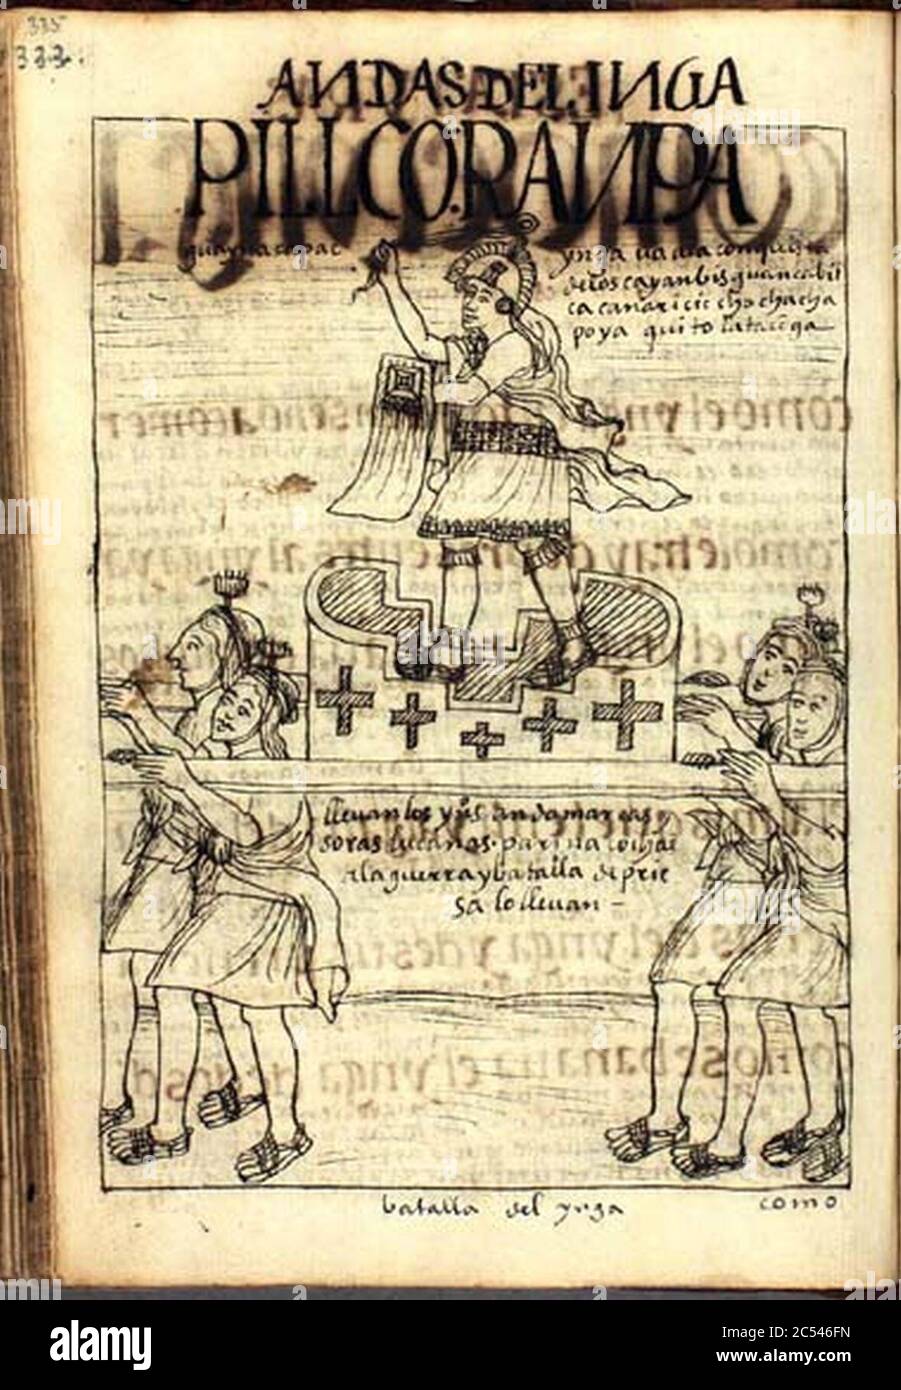 335
333
ANDAS DEL INGA
PILLCORANPA
guayna capac
ynga va a la conquista
de los cayanbis guancabil
ca cañari cic cho chacha
poya quito lataciga
lleuan los ynºs andamarcas y
soras lucanas parinacochas
a la guerra y batalla de prie
sa lo lleuan
batalla del ynga
como
alamy
Image ID: 2C546FN
www.alamy.com